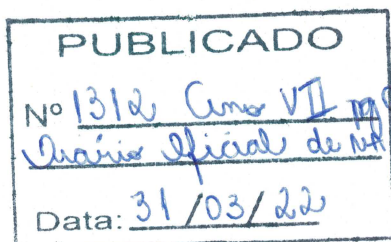 PUBLICADO
Nº 1312 Ano VII pg
Diário Oficial de NA
Data: 31/03/22